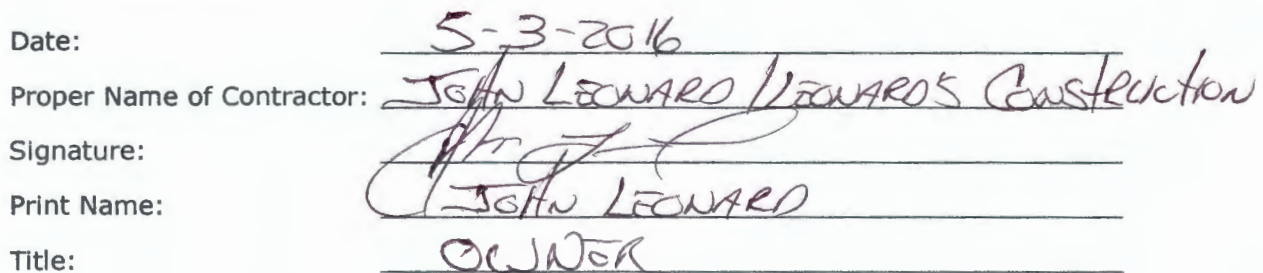 Date: 5-3-2016
Proper Name of Contractor: JOHN LEONARD / LEONARD'S CONStRUCtION
Signature:
Print Name: JOHN LEONARD
Title: OWNER